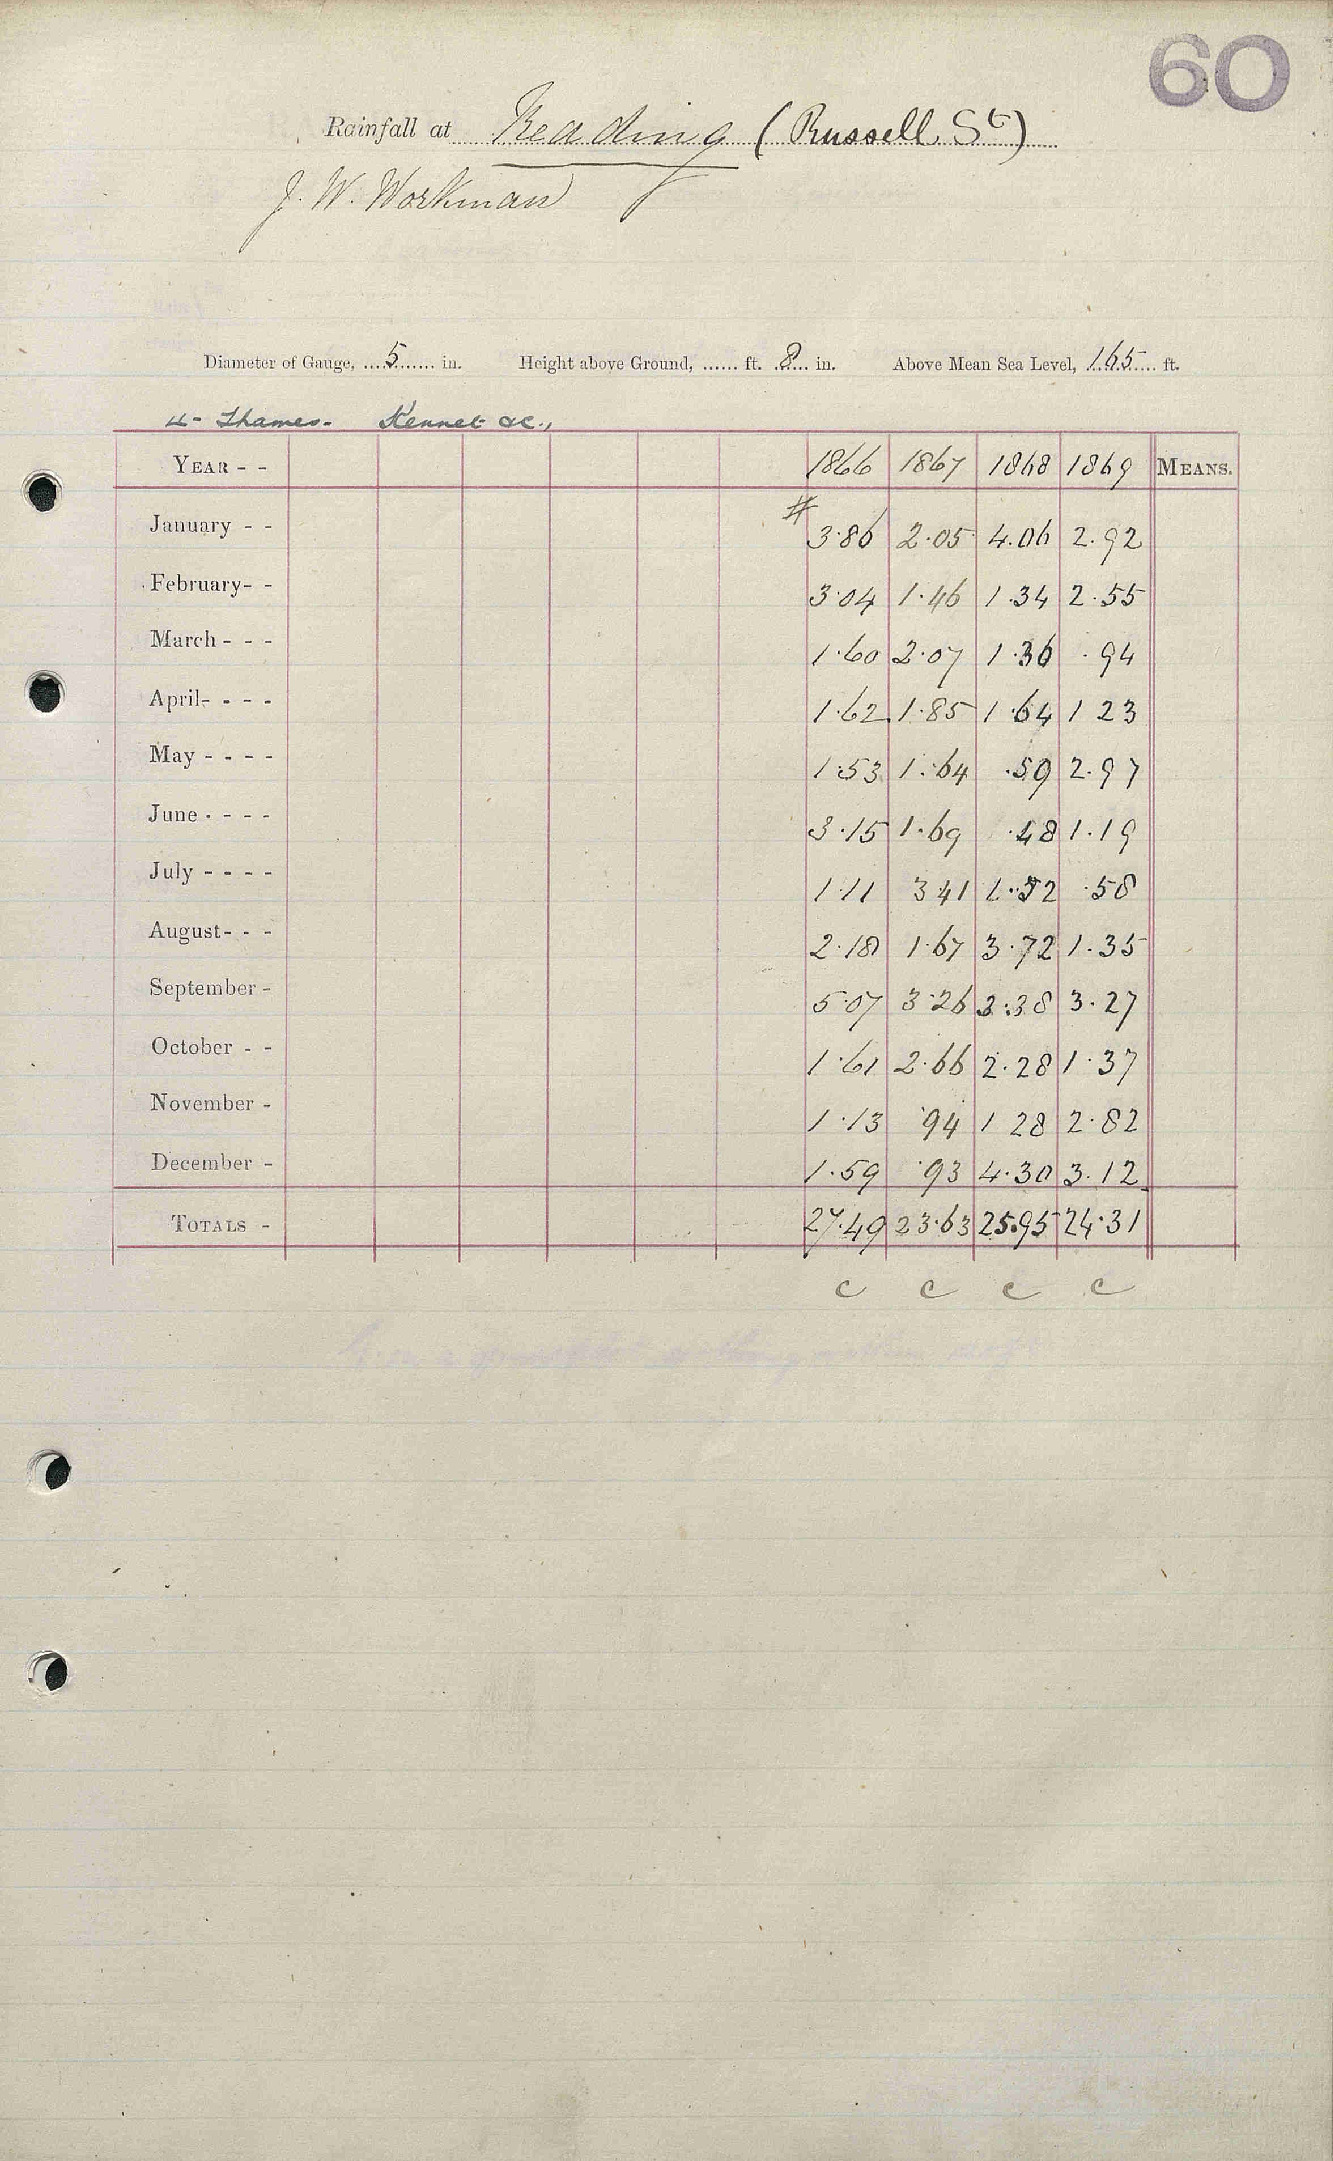 60
Rainfall at Reading (Russell St)
J. W. Workman
Diameter of Gauge, 5 in. Height above Ground, ...... ft. 8 in. Above Mean Sea Level, 165 ft.
4- Thames- Kennet &c.,
YEAR - - 1866 1867 1868 1869 MEANS.
#
January - - 3.86 2.05 4.06 2.92
February- - 3.04 1.46 1.34 2.55
March - - - 1.60 2.07 1.36 .94
April- - - - 1.62 1.85 1.64 1 23
May - - - - 1.53 1.64 .59 2.97
June - - - - 3.15 1.69 .48 1.19
July - - - - 1.11 3 41 1.52 .58
August- - - 2.18 1.67 3.72 1.35
September - 5.07 3.26 3.38 3.27
October - - 1.61 2.66 2.28 1.37
November - 1.13 .94 1 28 2.82
December - 1.59 .93 4.30 3.12
TOTALS - 27.49 23.63 25.95 24.31
c c c c